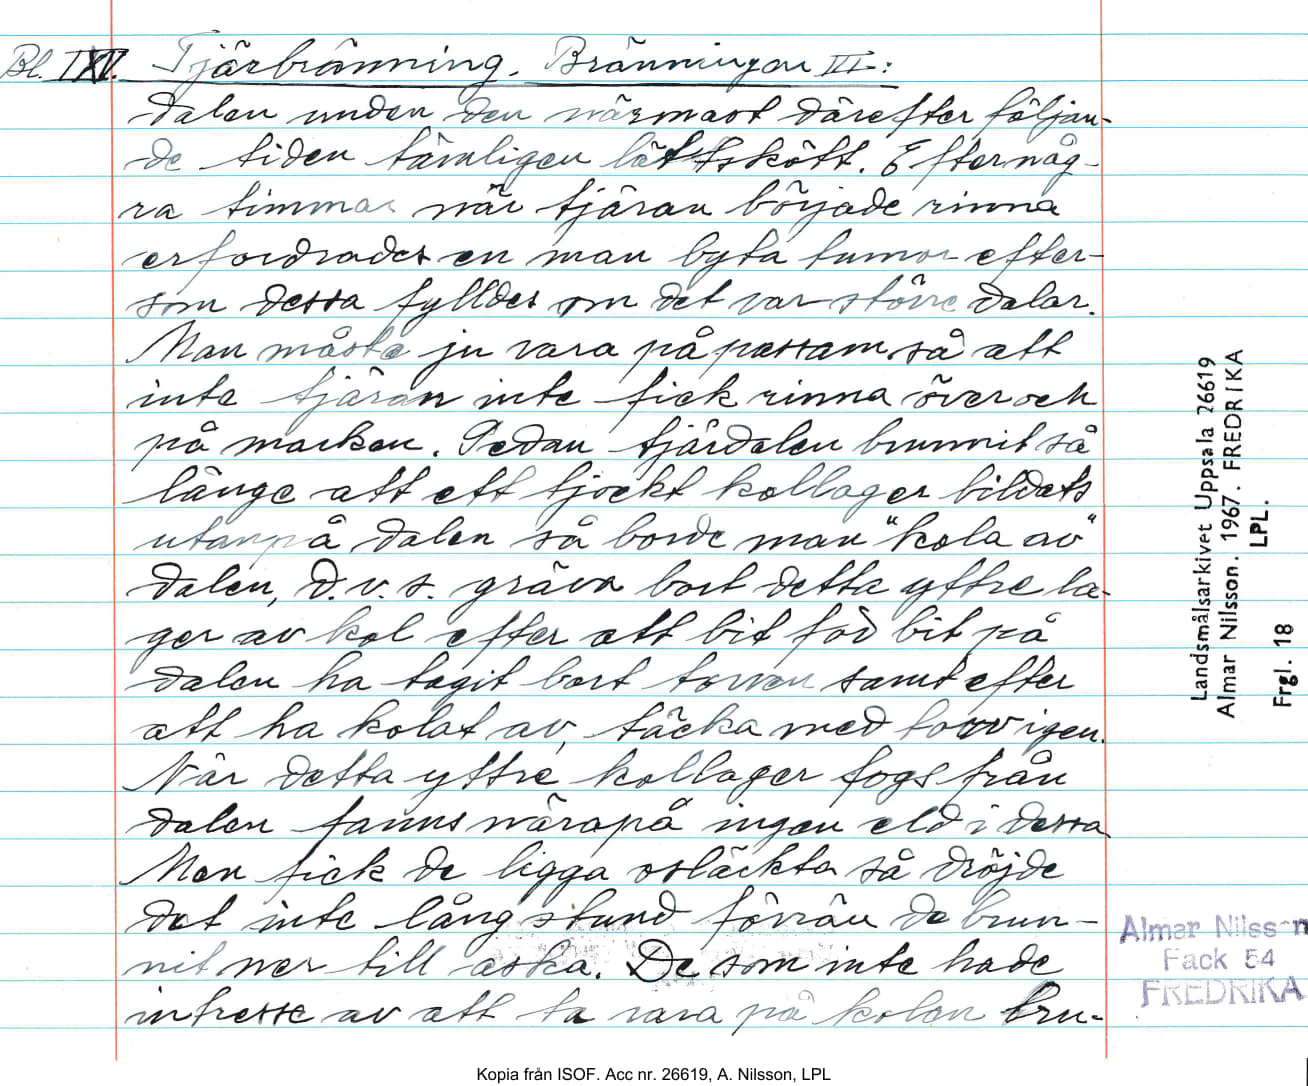 Bl. IXV. Tjärbränning. Bränningen III:
dalen under den närmast därefter följan-
de tiden tämligen lättskött. Efter någ-
ra timmar när tjäran började rinna
erfordrades en man byta tunnor efter-
som dessa fylldes om det var större dalar.
Man måste ju vara på passam så att
inte tjäran inte fick rinna över och
på marken. Sedan tjärdalen brunnit så
länge att ett tjockt kollager bildats
utanpå dalen så borde man "kola av"
dalen, d.v.s. gräva bort detta yttre la-
ger av kol efter att bit för bit på
dalen ha tagit bort torven samt efter
att ha kolat av, täcka med torv igen.
När detta yttre kollager togs från
dalen fanns närapå ingen eld i dessa
Men fick de ligga osläckta så dröjde
det inte lång stund förrän de brun-
nit ner till aska. De som inte hade
intresse av att ta vara på kolen bru-
Landsmålsarkivet Uppsala 26619
Almar Nilsson. 1967. FREDRIKA
LPL.
Frgl. 18
Almar Nilsson
Fack 54
FREDRIKA
Kopia från ISOF. Acc nr. 26619, A. Nilsson, LPL